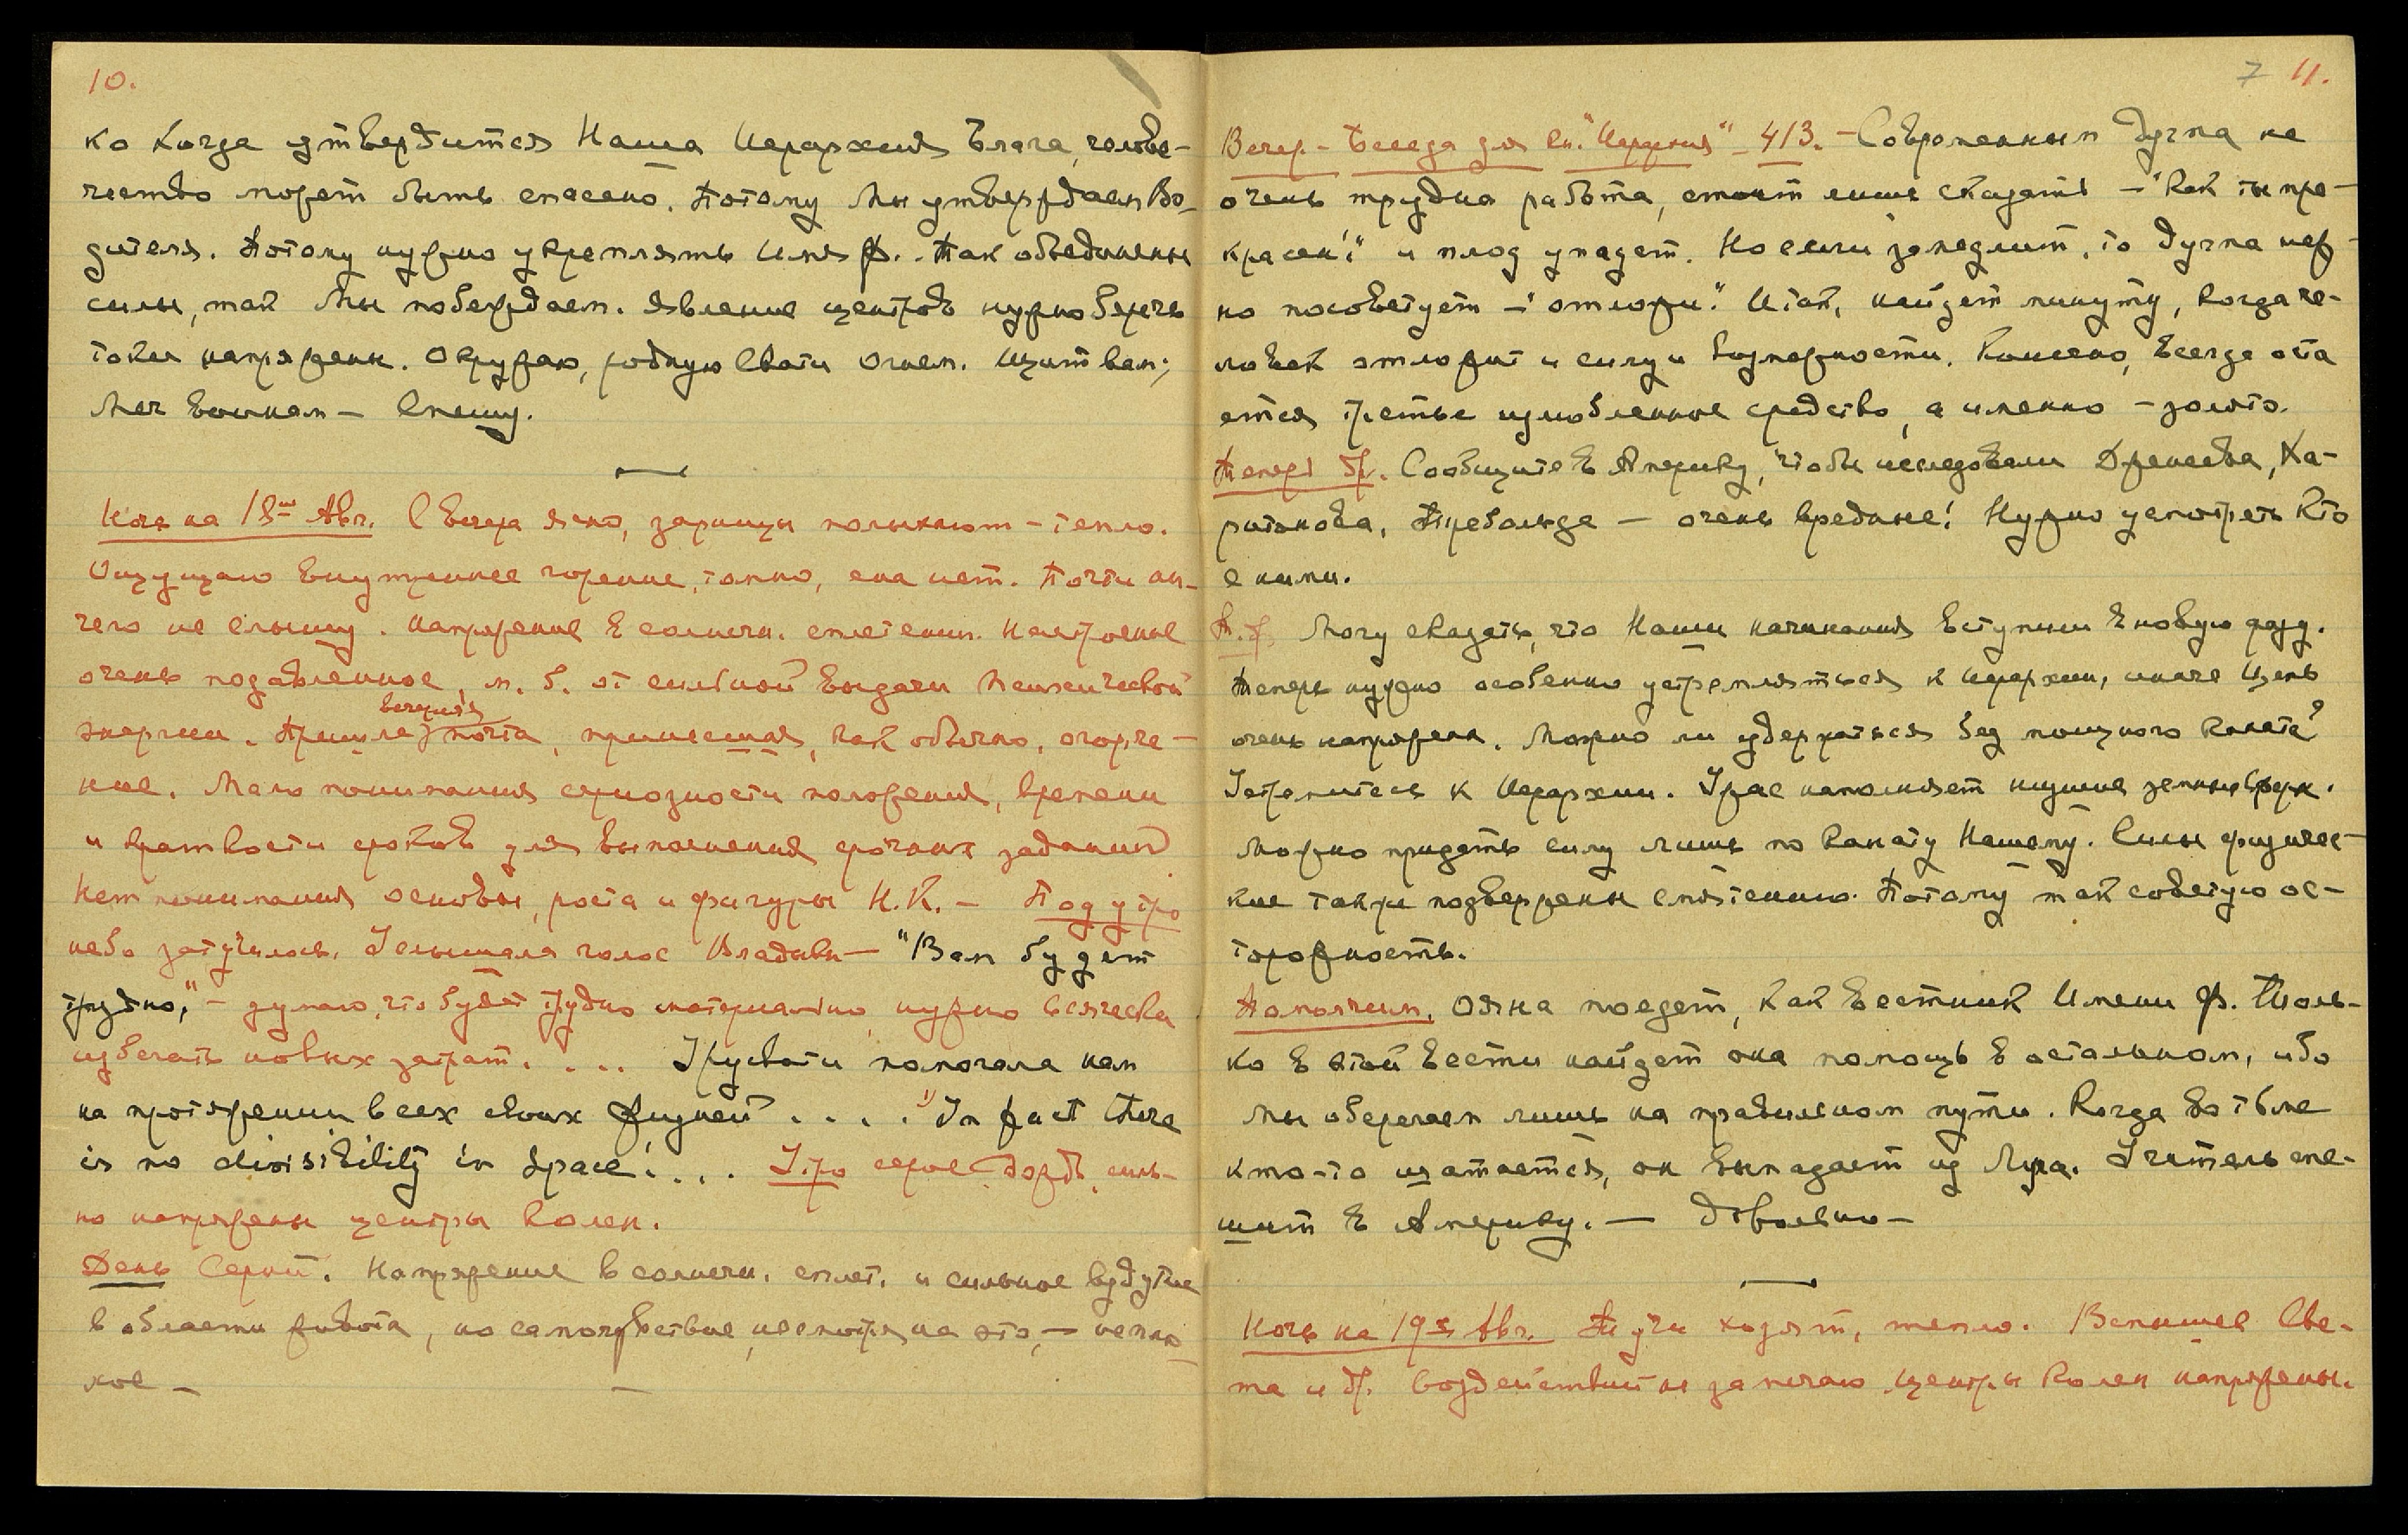 10.
ко когда утвердится Наша Иерархия Блага, челове-
чество может быть спасено. Потому Мы утверждаем Во-
дителя. Потому нужно укреплять Имя Ф. Так объединены
силы, так Мы побеждаем. Явление центров нужно беречь
токи напряжены. Окружаю, родную Свати Огнем. Щит вам;
Меч Воинам — Спешу.
Ночь на 18ое Авг. С вечера ясно, зарницы полыхают — тепло.
Ощущаю внутреннее горение, томно, сна нет. Почти ни-
чего не слышу. Напряжение в солнечн. сплетении. Настроение
очень подавленное, м. б. от сильной выдачи психической
энергии. Пришла вечерняя почта, принесшая, как обычно, огорче-
ние. Мало понимания серьозности положения, времени
и краткости сроков для выполнения срочных заданий
Нет понимания основы, роста и фигуры Н.К. — Под утро
небо затучилось. Услышала голос Владыки — "Вам будет
трудно," — думаю, что будет трудно материально, нужно всячески
избегать новых затрат. . . . Урусвати помогала нам
на протяжении всех своих жизней . . . . "In fact there
is no divisibility in Space! . . . Утро серое, дождь, силь-
но напряжены центры колен.
День Серый. Напряжение в солнечн. сплет. и сильное вздутие
в области живота, но самочувствие, несмотря на это, — непло-
хое —
7 11.
Вечер — Беседа для кн. "Иерархия" — 413. — Современным дугпа не
очень трудна работа, стоит лишь сказать — "Как ты пре-
красен!" и плод упадет. Но если замедлит, то дугпа неж-
но посоветует — "отложи." Итак, найдет минуту, когда че-
ловек отложит и силу и возможности. Конечно, всегда оста
ется третье излюбленное средство, а именно — золото.
Теперь др. Сообщите в Америку, чтобы исследовали Дженсена, Ха-
ритонова, Требольда — очень вредные! Нужно усмотреть кто
с ними.
Т. д. Могу сказать, что Наши начинания вступили в новую фазу.
Теперь нужно особенно устремляться к Иерархии, иначе Цепь
очень напряжена. Можно ли удержаться без мощного Каната?
Устремитесь к Иерархии. Ужас наполняет низшие земные сферы.
Можно придать силу лишь по Канату Нашему. Силы физичес-
кие также подвержены смятению. Потому так советую ос-
торожность.
Помолчим. Ояна поедет, как Вестник Имени Ф. Толь-
ко в этой Вести найдет она помощь в остальном, ибо
Мы оберегаем лишь на правильном пути. Когда во тьме
кто-то шатается, он выпадает из Луча. Учитель спе-
шит в Америку. — Довольно —
Ночь на 19ое Авг. Тучи ходят, тепло. Вспышек Све-
та и др. воздействий не замечаю. Центры колен напряжены.